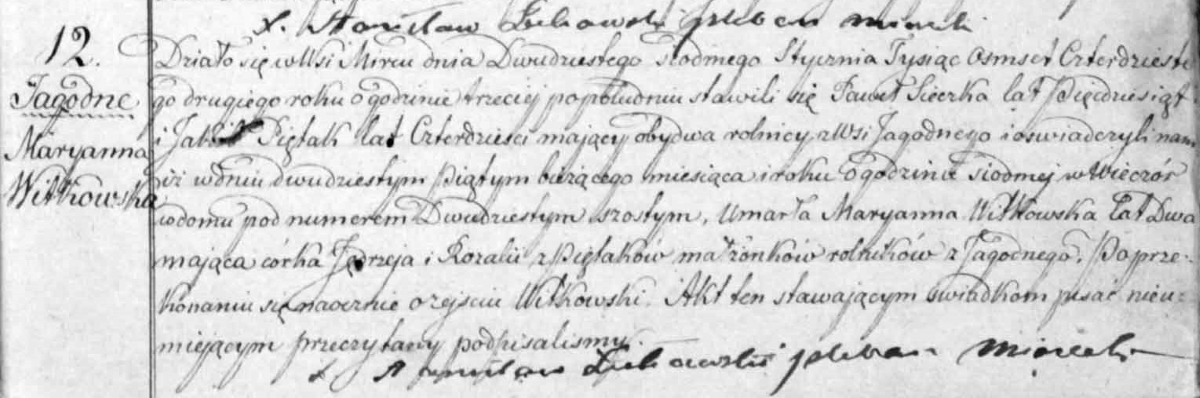 X. Stanisław Żukowski pleban mirecki
12.
Jagodne
Maryanna
Witkowska
Działo się w Wsi Mircu dnia Dwudziestego siodmego Stycznia Tysiąc osmset Czterdzieste-
go drugiego roku o godzinie trzeciej popołudniu stawili się Paweł Sieczka lat Pięćdziesiąt
i Jakób Piętak lat Czterdzieści mający obydwa rolnicy z Wsi Jagodnego i oswiadczyli nam
iż w dniu dwudziestym Piątym bieżącego miesiąca i roku o godzinie siodmej w Wieczór
w domu pod numerem Dwudziestym szostym, Umarła Maryanna Witkowska lat Dwa
mająca córka Jędrzeja i Rozalii z Piętaków małżonków rolników z Jagodnego. Po prze-
konaniu się naocznie o zejściu Witkowski. Akt ten stawającym świadkom pisać nieu-
miejącym przeczytany podpisalismy.
X Stanisław Żukowski pleban mirecki